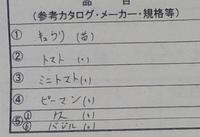 品目
(参考カタログ・メーカー・規格等)
① キュウリ (苗)
② トマト (〃)
③ ミニトマト (〃)
④ ピーマン (〃)
⑤① ナス (〃)
② バジル (〃)